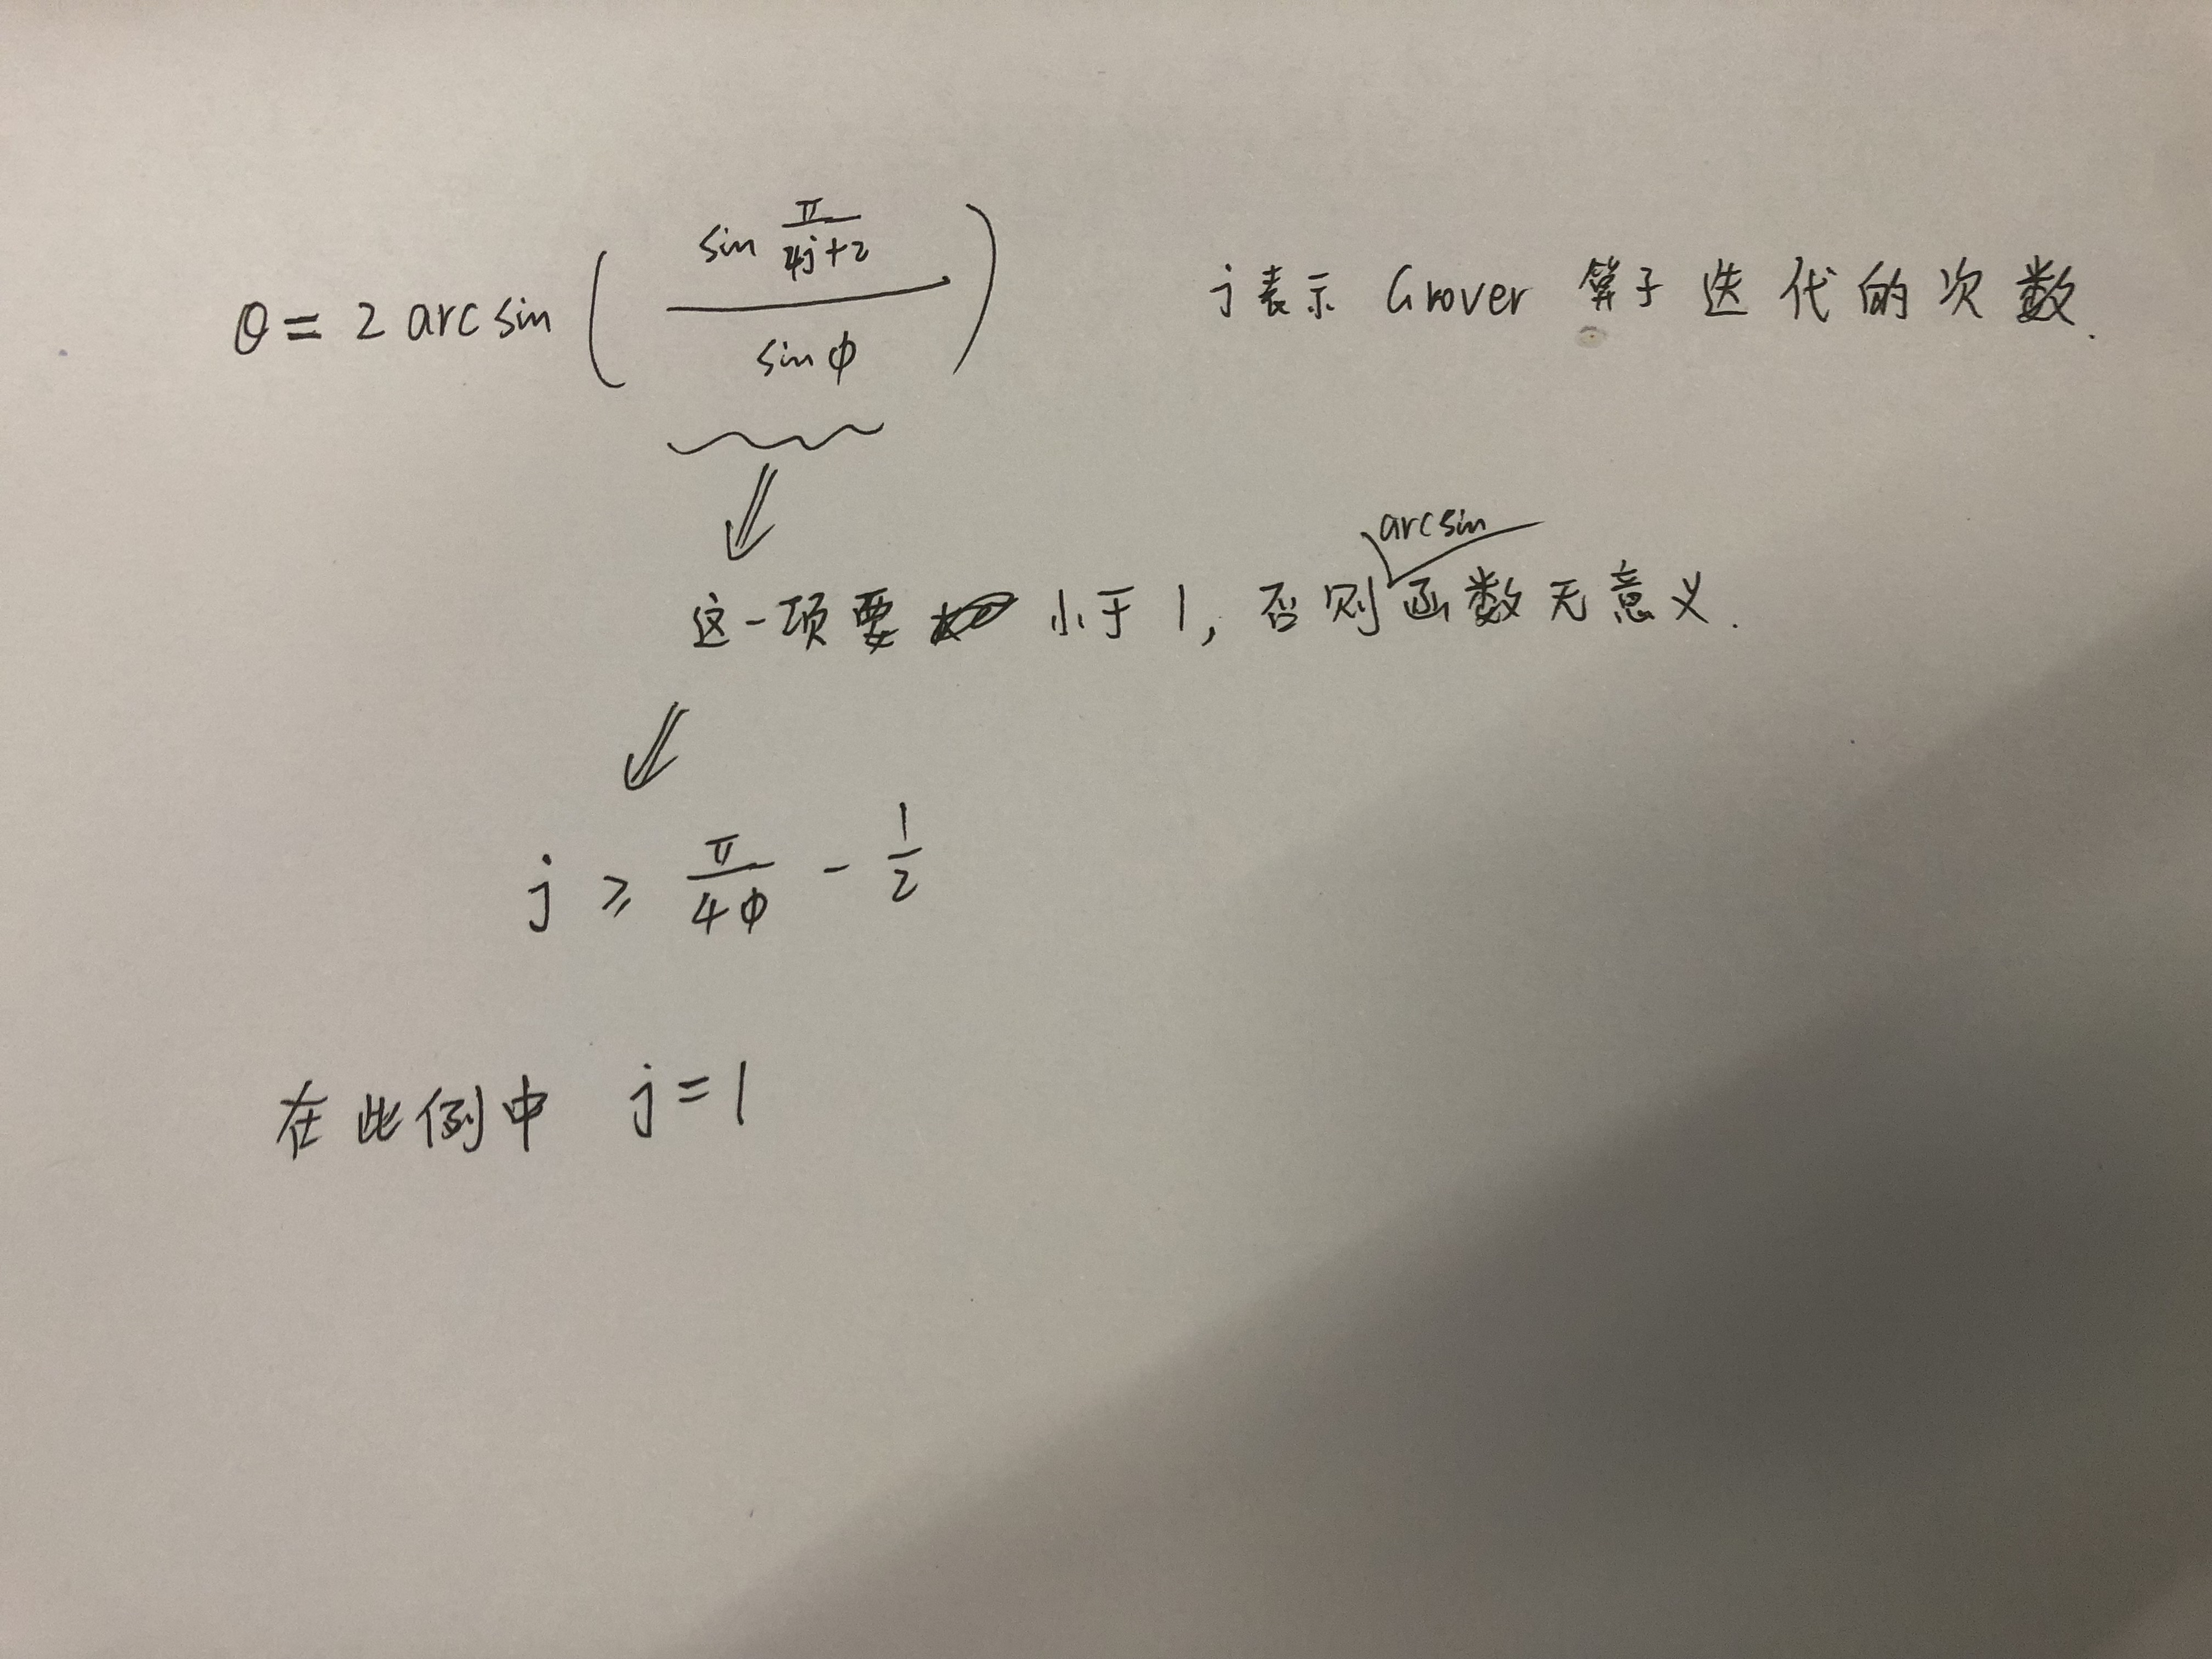 θ = 2 arcsin ( sin π/(4j+2) / sin φ ) j表示 Grover 算子迭代的次数.
这一项要小于1, 否则arcsin函数无意义.
j ≥ π/4φ - 1/2
在此例中 j=1